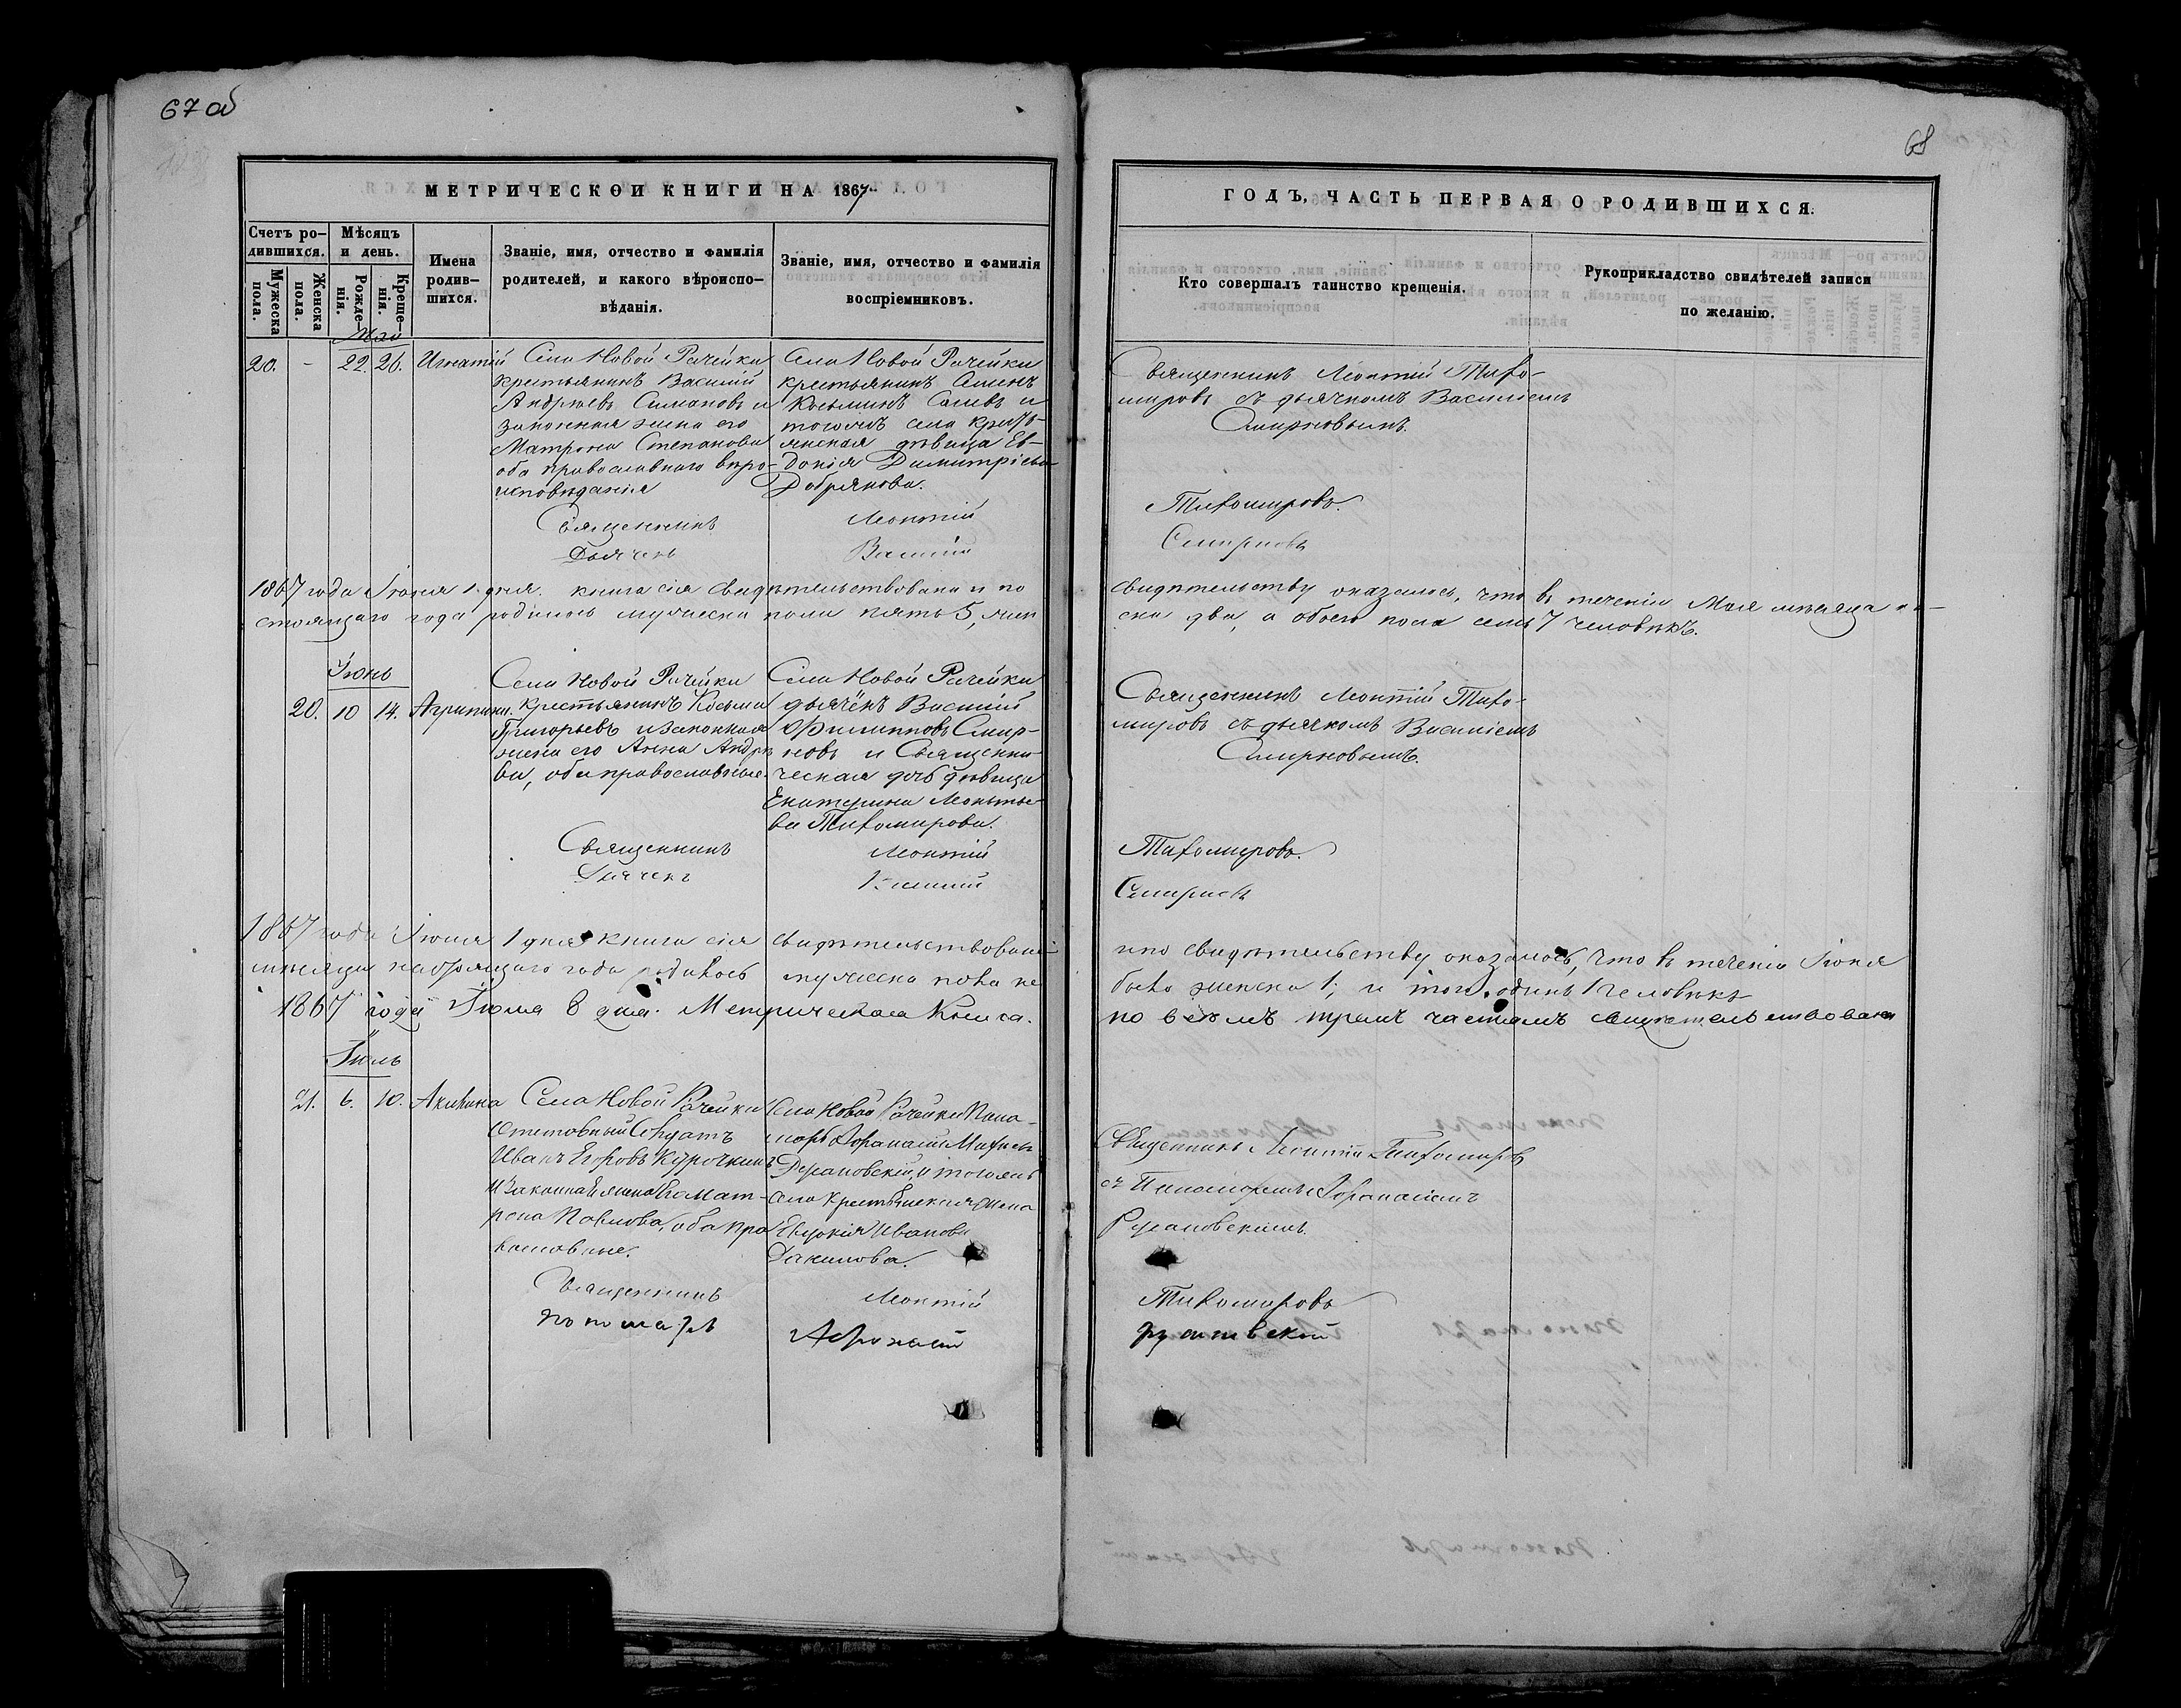 67 об
68
МЕТРИЧЕСКОЙ КНИГИ НА 1867
ГОДЪ, ЧАСТЬ ПЕРВАЯ О РОДИВШИХСЯ.
Счетъ ро-
дившихся.
Мужеска
пола.
Женска
пола.
Мѣсяцъ
и день.
Рожде-
нія.
Креще-
нія.
Имена
родив-
шихся.
Званіе, имя, отчество и фамилія
родителей, и какого вѣроиспо-
вѣданія.
Званіе, имя, отчество и фамилія
воспріемниковъ.
Кто совершалъ таинство крещенія.
Рукоприкладство свидѣтелей записи
по желанію.
Май
20. - 22. 26. Игнатій
Села Новой Рачейки
крестьянинъ Василій
Андреевъ Симановъ и
законная жена его
Матрона Степанова
оба православнаго вѣро-
исповѣданія
Села Новой Рачейки
крестьянинъ Семенъ
Косьминъ и
тогожъ села кресть-
янская дѣвица Ев-
докія Димитріева
Добрякова.
Священникъ Леонтій Тихо-
мировъ съ дьячкомъ Василіемъ
Смирновымъ.
Священникъ Леонтій Тихомировъ.
Дьячекъ Василій Смирновъ
1867 года Іюня 1 дня. книга сія свидѣтельствована и по свидѣтельству оказалось, что въ теченіи Мая мѣсяца на-
стоящаго года родилось мужеска пола пять 5, жен ска два, а обоего пола семь 7 человѣкъ.
Іюнь
20. 10 14. Агрипина.
Села Новой Рачейки
крестьянинъ Косьма
Григорьевъ и законная
жена его Анна Андрее
ва, оба православные.
Села Новой Рачейки
дьячёкъ Василій
Филипповъ Смир-
новъ и Священни
ческая дочь дѣвица
Екатерина Леонтье-
ва Тихомирова.
Священникъ Леонтій Тихо-
мировъ съ дьячкомъ Василіемъ
Смирновымъ.
Священникъ Леонтій Тихомировъ.
Дьячекъ Василій Смирновъ
1867 года Іюля 1 дня книга сія свидѣтельствована и по свидѣтельству оказалось, что въ теченіи Іюня
мѣсяца настоящаго года родилось мужеска пола не было женска 1, и того одинъ 1 человѣкъ
1867 года Іюля 8 дня. Метрическая Книга. по всѣмъ тремъ частямъ свидѣтельствована
Іюль
21. 6. 10. Акилина
Села Новой Рачейки
Отставный Солдатъ
Иванъ Егоровъ Курочкинъ
и Законная жена Его Мат-
рона Павлова, оба пра
вославные.
Села Новой Рачейки Поно-
марь
и тогожъ
села Крестьянская жена
Евдокія Иванова
Данилова.
Священникъ Леонтій Тихомировъ
съ Пономаремъ Афонасіемъ
Русановскимъ.
Священникъ Леонтій Тихомировъ
пономарь Афонасій